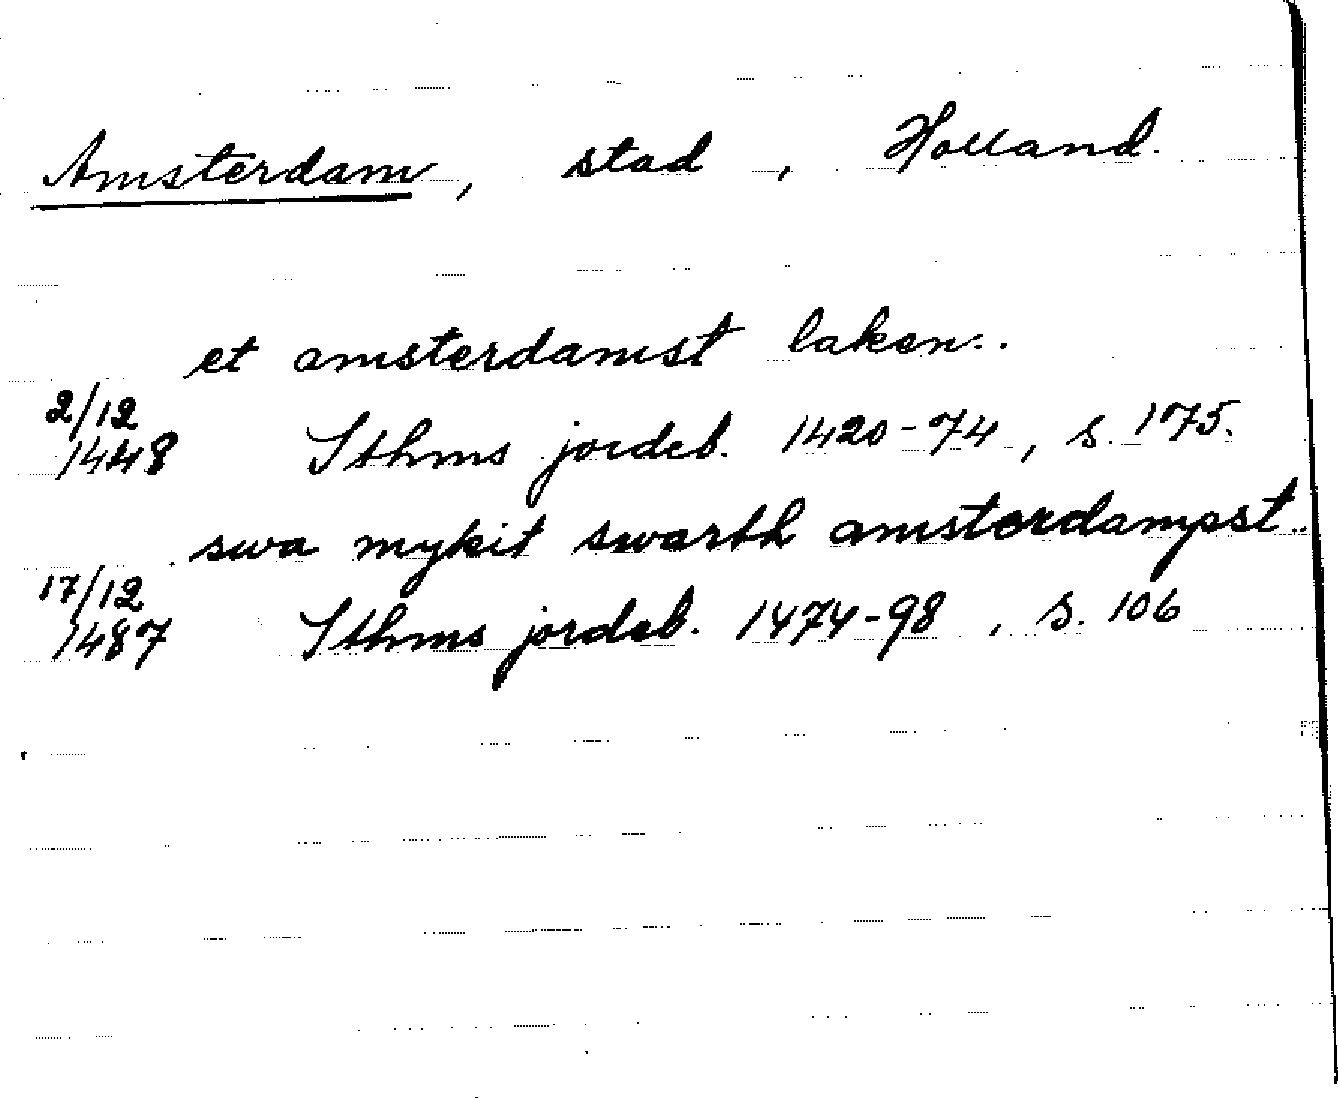 Amsterdam, stad, Holland.
et amsterdamst laken..
2/12 1448 Sthms jordeb. 1420-74, s. 175.
swa mykit swarth amsterdampst..
17/12 1487 Sthms jordeb. 1474-98, s. 106